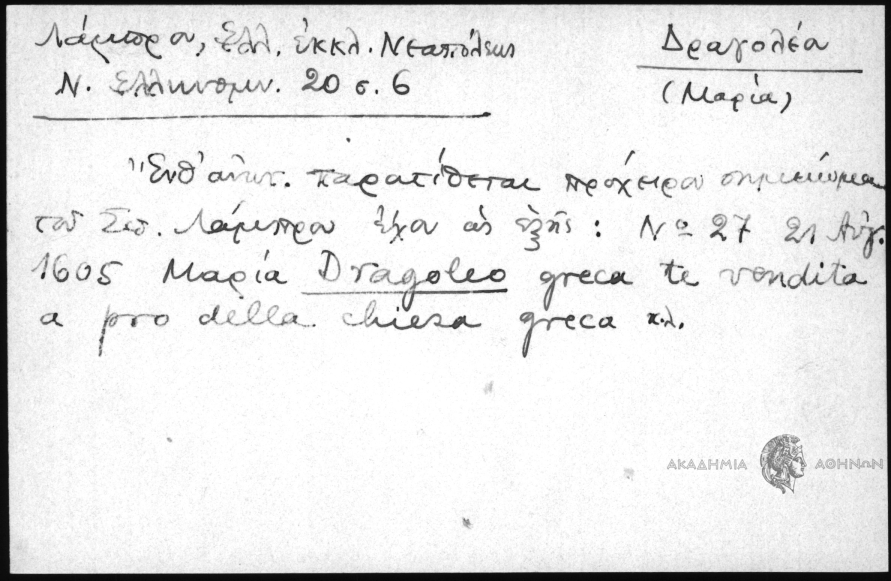 Λάμπρου, Ἑλλ. ἐκκλ. Νεαπόλεως
Ν. Ἑλληνομν. 20 σ. 6
Δραγολέα
(Μαρία)
"Ἐνθ' ἀνωτ. παρατίθεται πρόχειρον σημείωμα
τοῦ Σπ. Λάμπρου ἔχον ὡς ἑξῆς: Nο 27 21 Αὐγ.
1605 Μαρία Dragoleo greca te vendita
a pro della chiesa greca κ.λ.
ΑΚΑΔΗΜΙΑ ΑΘΗΝΩΝ